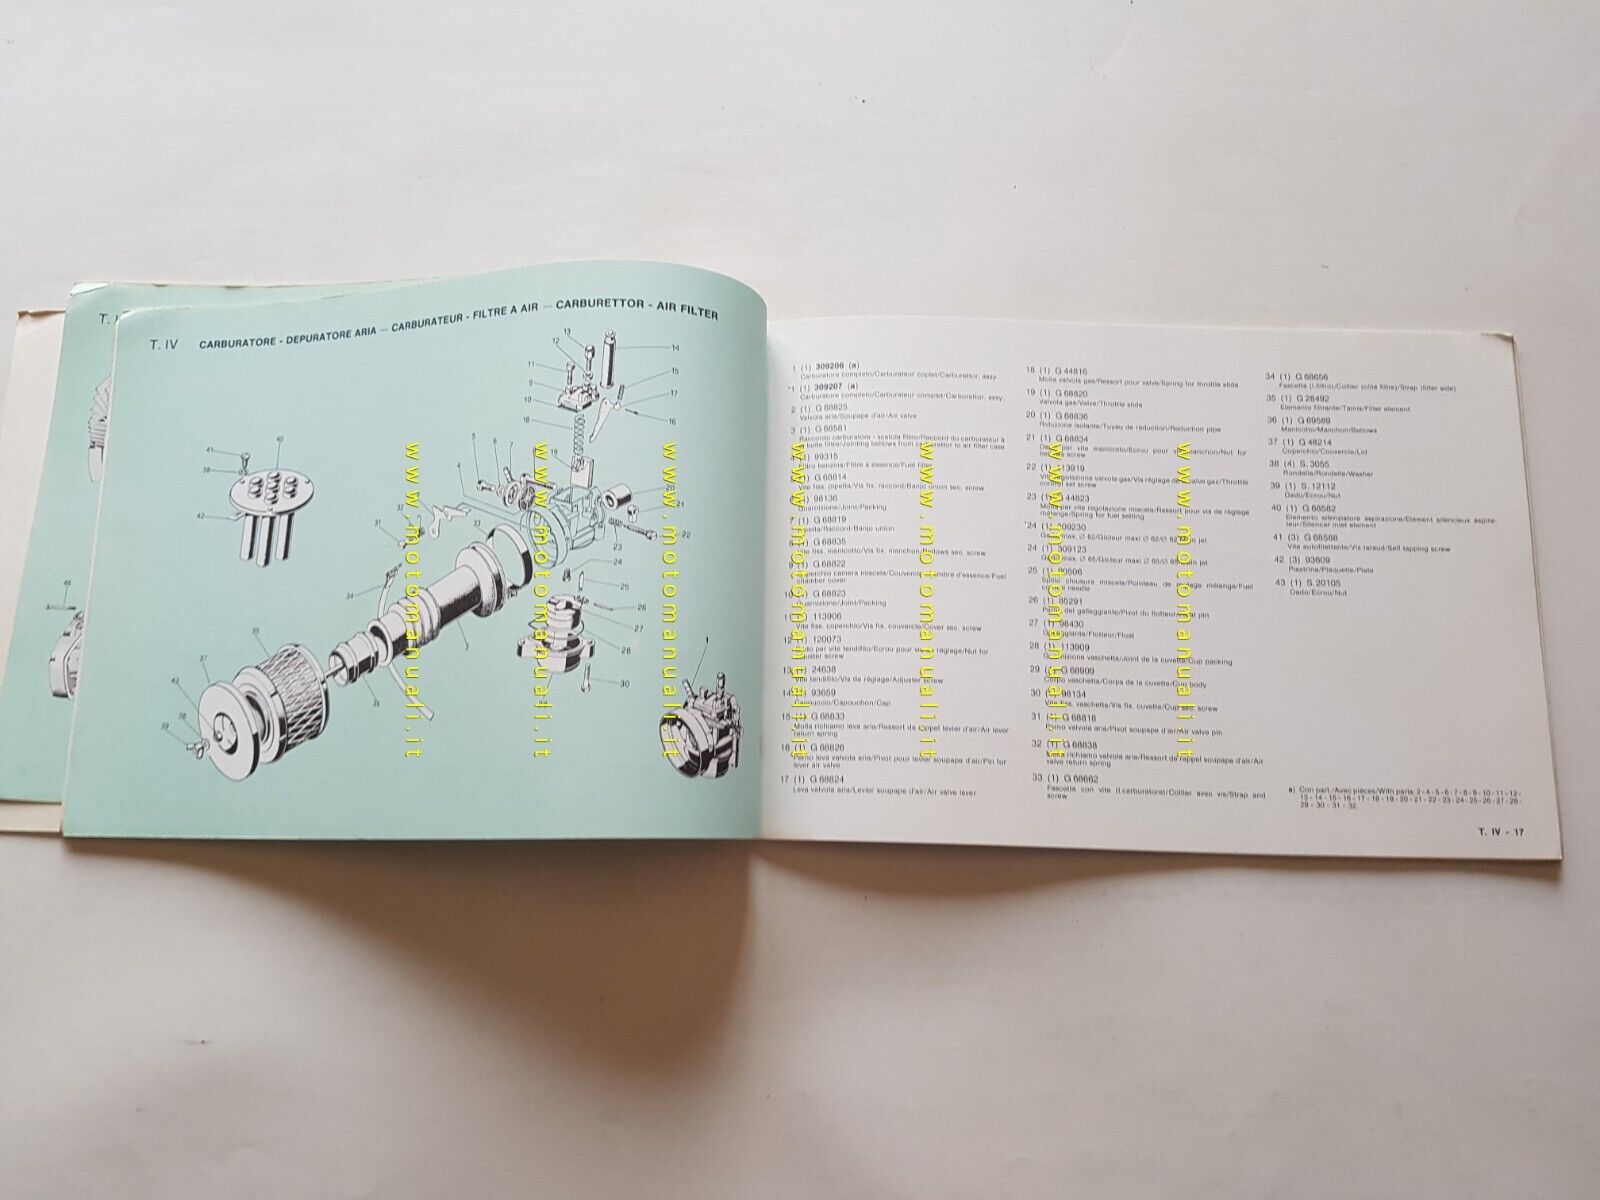 T. IV CARBURATORE - DEPURATORE ARIA — CARBURATEUR - FILTRE A AIR — CARBURETTOR - AIR FILTER
1 (1) 309206 (a)
Carburatore completo/Carburateur coplet/Carburettor, assy.
*1 (1) 309207 (a)
Carburatore completo/Carburateur complet/Carburettor, assy.
2 (1) G 68825
Valvola aria/Soupape d'air/Air valve
3 (1) G 68581
Raccordo carburatore - scatola filtro/Raccord du carburateur à
boîte filtre/Jointing bellows from carburetter to air filter case
99315
Filtro benzina/Filtre à essence/Fuel filter
G 68814
Vite fiss. pipetta/Vis fix. raccord/Banjo union sec. screw
98136
Guarnizione/Joint/Packing
7 (1) G 68819
Pipetta/Raccord/Banjo union
G 68835
Vite fiss. manicotto/Vis fix. manchon/Bellows sec. screw
G 68822
Coperchio camera miscela/Couvercle chambre d'essence/Fuel
chamber cover
G 68823
Guarnizione/Joint/Packing
113906
Vite fiss. coperchio/Vis fix. couvercle/Cover sec. screw
120073
Dado per vite tendifilo/Ecrou pour vis de réglage/Nut for
adjuster screw
24638
Vite tendifilo/Vis de réglage/Adjuster screw
93659
Cappuccio/Capouchon/Cap
15 (1) G 68833
Molla richiamo leva aria/Ressort de rappel levier d'air/Air lever
return spring
16 (1) G 68826
Perno leva valvola aria/Pivot pour levier soupape d'air/Pin for
lever air valve
17 (1) G 68824
Leva valvola aria/Levier soupape d'air/Air valve lever
18 (1) G 44816
Molla valvola gas/Ressort pour valve/Spring for throttle slide
19 (1) G 68820
Valvola gas/Valve/Throttle slide
20 (1) G 68836
Riduzione isolante/Tuyau de réduction/Reduction pipe
21 (1) G 68834
Dado per vite manicotto/Ecrou pour vis manchon/Nut for
bellows screw
22 (1) 113919
Vite regolazione valvola gas/Vis réglage de valve gaz/Throttle
control set screw
23 (1) 44823
Molla per vite regolazione miscela/Ressort pour vis de réglage
mélange/Spring for fuel setting
*24 (1) 309230
Getto max. Ø 62/Gicleur maxi Ø 62/Ø 62 main jet
24 (1) 309123
Getto max. Ø 65/Gicleur maxi Ø 65/Ø 65 main jet
25 (1) 90506
Spillo chiusura miscela/Pointeau de réglage mélange/Fuel
needle
26 (1) 85291
Perno del galleggiante/Pivot du flotteur/Float pin
27 (1) 98430
Galleggiante/Flotteur/Float
28 (1) 113909
Guarnizione vaschetta/Joint de la cuvette/Cup packing
29 G 68909
Corpo vaschetta/Corps de la cuvette/Cup body
30 98134
Vite fiss. vaschetta/Vis fix. cuvette/Cup sec. screw
31 G 68818
Perno valvola aria/Pivot soupape d'air/Air valve pin
32 (1) G 68838
Molla richiamo valvola aria/Ressort de rappel soupape d'air/Air
valve return spring
33 (1) G 68662
Fascetta con vite (l.carburatore)/Collier avec vis/Strap and
screw
34 (1) G 68656
Fascetta (l.filtro)/Collier (côté filtre)/Strap (filter side)
35 (1) G 28492
Elemento filtrante/Tamis/Filter element
36 (1) G 69569
Manicotto/Manchon/Bellows
37 (1) G 48214
Coperchio/Couvercle/Lid
38 (4) S. 3055
Rondella/Rondelle/Washer
39 (1) S. 12112
Dado/Ecrou/Nut
40 (1) G 68582
Elemento silenziatore aspirazione/Elément silencieux aspira-
teur/Silencer inlet element
41 (3) G 68588
Vite autofilettante/Vis taraud/Self tapping screw
42 (3) 93609
Piastrina/Plaquette/Plate
43 (1) S. 20105
Dado/Ecrou/Nut
a) Con part./Avec pièces/With parts: 2 - 4 - 5 - 6 - 7 - 8 - 9 - 10 - 11 - 12 -
13 - 14 - 15 - 16 - 17 - 18 - 19 - 20 - 21 - 22 - 23 - 24 - 25 - 26 - 27 - 28 -
29 - 30 - 31 - 32.
T. IV - 17
www.motomanuali.it
www.motomanuali.it
www.motomanuali.it
www.motomanuali.it
www.motomanuali.it
www.motomanuali.it
www.motomanuali.it